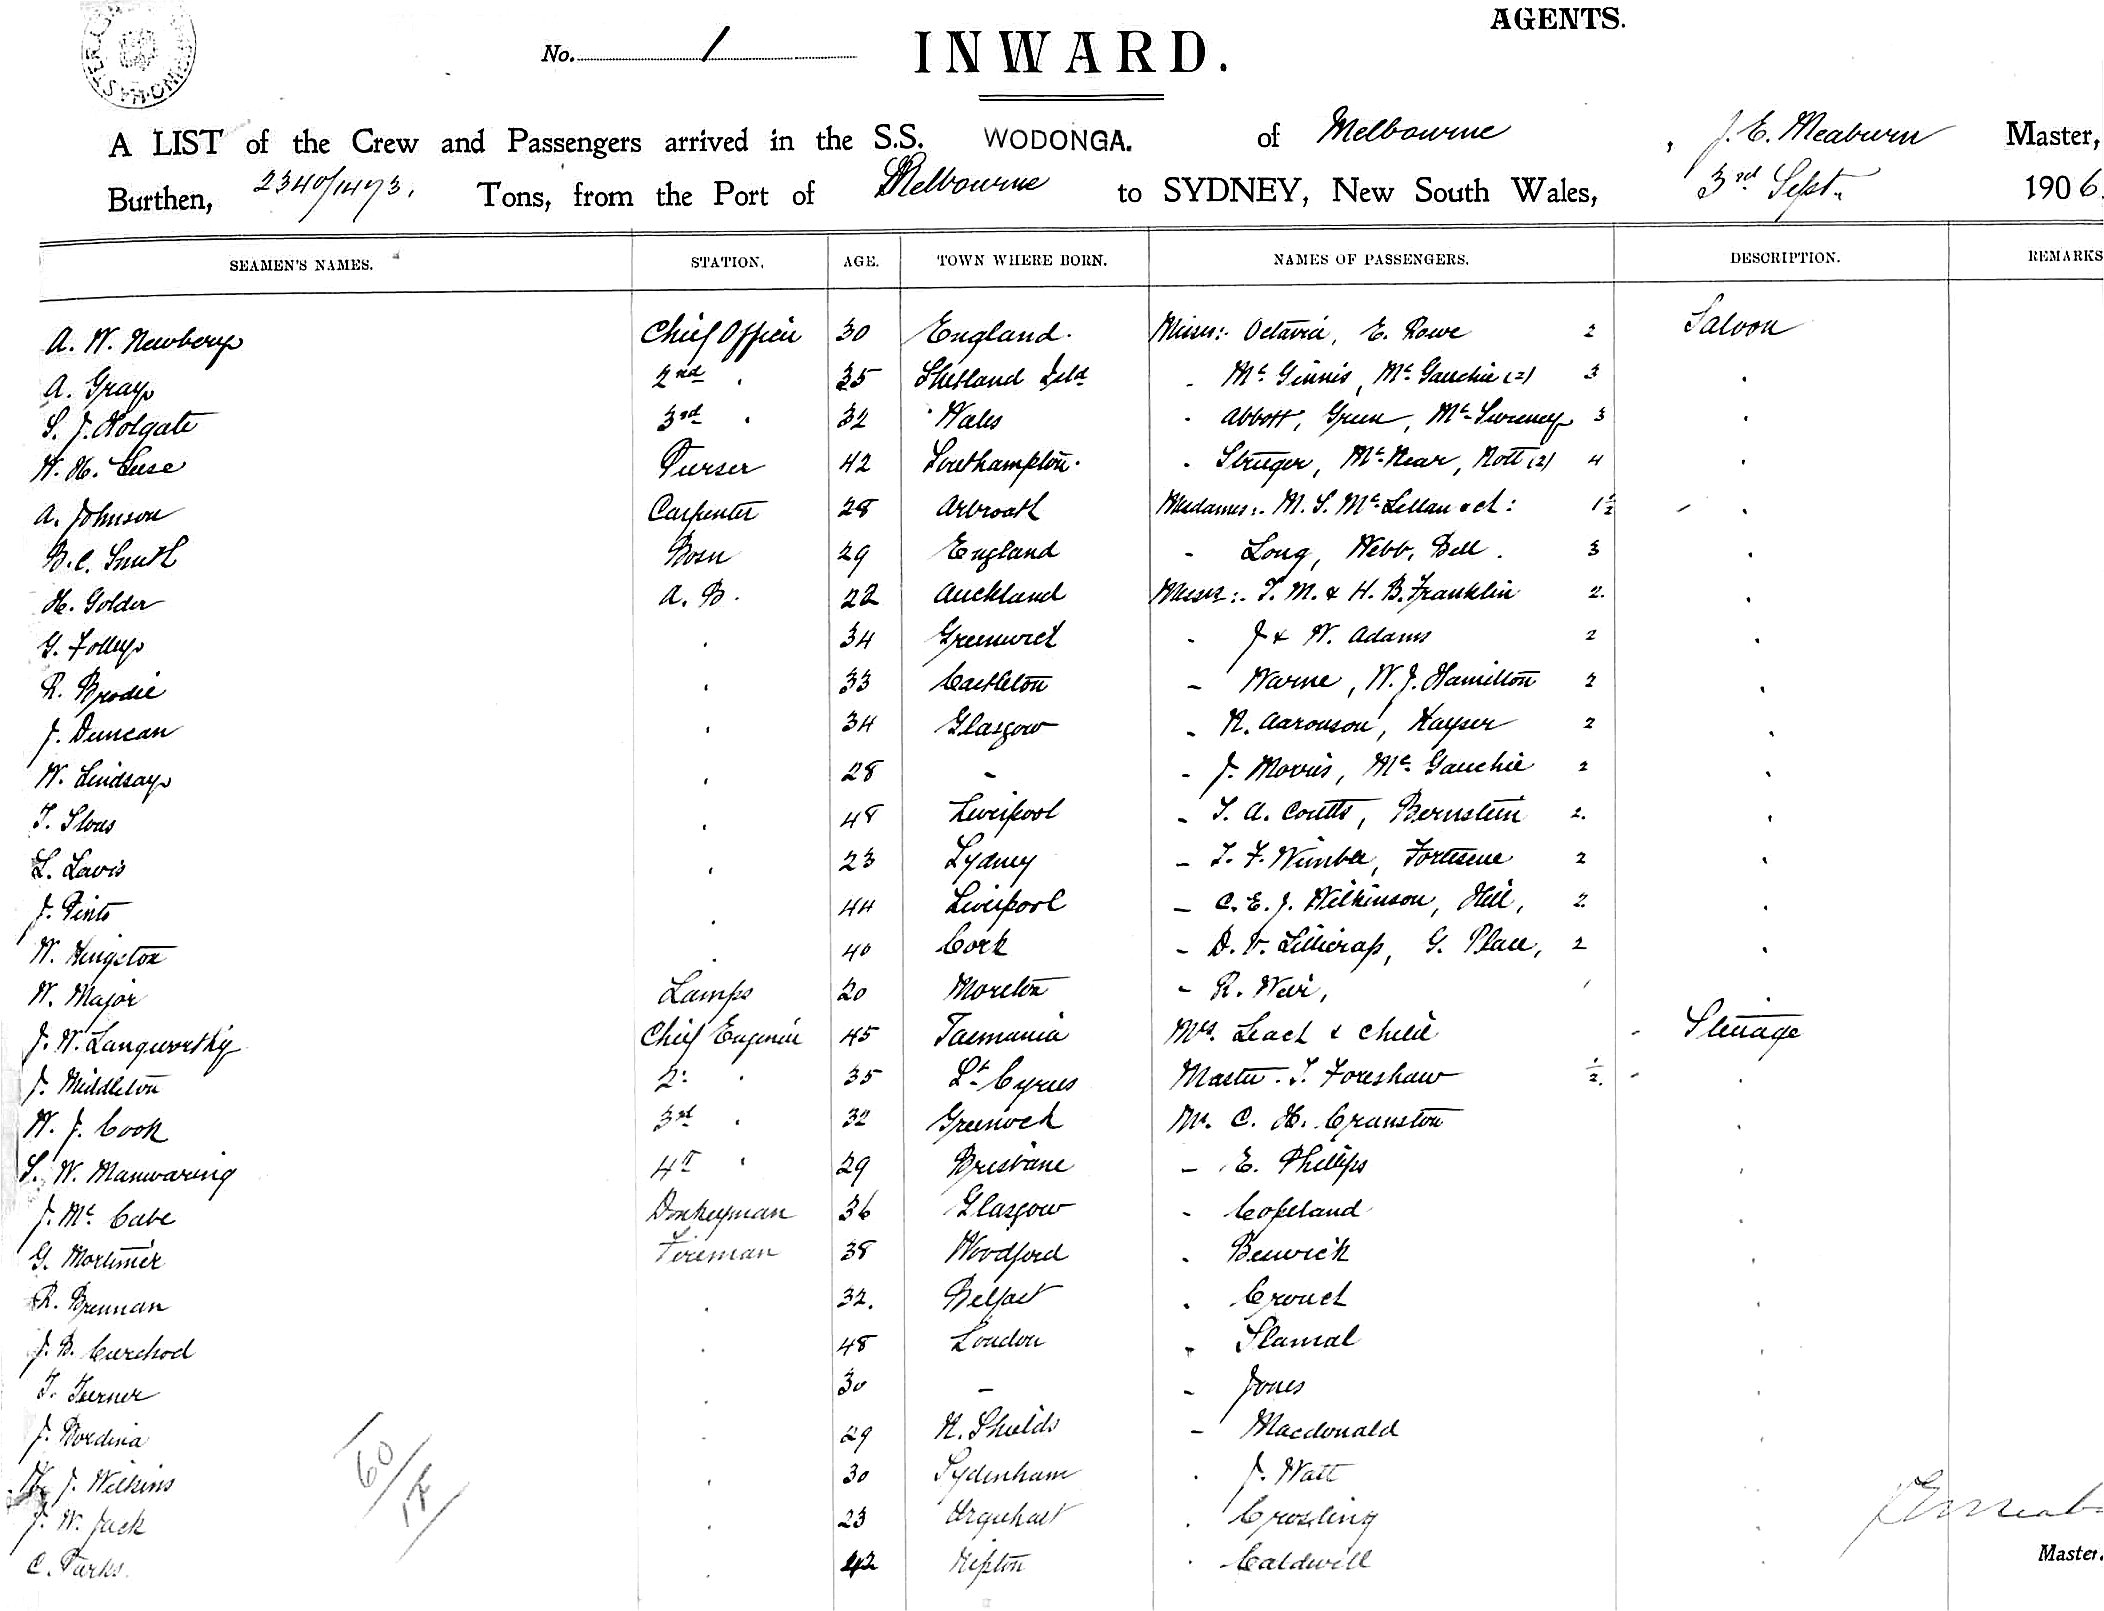 AGENTS.
No. 1 INWARD.
A LIST of the Crew and Passengers arrived in the S.S. WODONGA. of Melbourne, J. E. Meaburn Master,
Burthen, 2340/1473. Tons, from the Port of Melbourne to SYDNEY, New South Wales, 3rd Sept. 1906.
SEAMEN'S NAMES. STATION, AGE. TOWN WHERE BORN. NAMES OF PASSENGERS. DESCRIPTION. REMARKS
A. W. Newbery Chief Officer 30 England. Misses:. Octavia, E. Rowe 2 Saloon
A. Gray 2nd " 35 Shetland Isld - Mc Ginnis, Mc Gauchie (2) 3 "
S. J. Holgate 3rd " 32 Wales - Abbott, Green, Mc Sweeney 3 "
W. H. Purser 42 Southampton. - Mc Near, Nott (2) 4 "
A. Johnson Carpenter 28 Arbroath Mesdames:. M. S. Mc Lellan & ch: 1½ "
B. C. Smith Bosn 29 England - Long, Webb, Bell. 3 "
H. Golder A. B. 22 Auckland Messrs:. T. M. & H. B. Franklin 2. "
G. Folley " 34 Greenwich - J & W. Adams 2 "
R. Brodie " 33 Castleton - Warne, W. J. Hamilton 2 "
J. Duncan " 34 Glasgow - N. Aaronson, Kayser 2 "
W. Lindsay " 28 - - J. Morris, Mc Gauchie 2 "
T. " 48 Liverpool - T. A. Coutts, Bernstein 2. "
L. Lavis " 23 Sydney - T. F. Wimble, Fortescue 2 "
J. Pinto " 44 Liverpool - C. E. J. Wilkinson, Hill, 2 "
W. Kingston " 40 Cork - D. V. Lillicrap, G. Place, 2 "
W. Major Lamps 20 Moreton - R. Weir, 1 "
J. W. Langworthy Chief Engineer 45 Tasmania Mrs. Leach & Child - Steerage
J. Middleton 2: " 35 St. Cyrus Master. T. Foreshaw ½. - "
W. J. Cook 3rd " 32 Greenock Mr. C. H. Cranston "
S. W. Manwaring 4th " 29 Brisbane - E. Phillips "
J. Mc Cabe Donkeyman 36 Glasgow - Copeland "
G. Mortimer Fireman 38 Woodford " Benwick "
R. Brennan " 32. Belfast " Crouch "
J. B. Curchod " 48 London " Slamal "
T. Turner " 30 - - Jones "
J. Bordina " 29 N. Shields - Macdonald "
W. J. Wilkins " 30 Sydenham " J. Watt
J. W. Jack " 23 Urquhart " Crossling "
C. Parks. " 42 " Caldwell "
60/
Master.